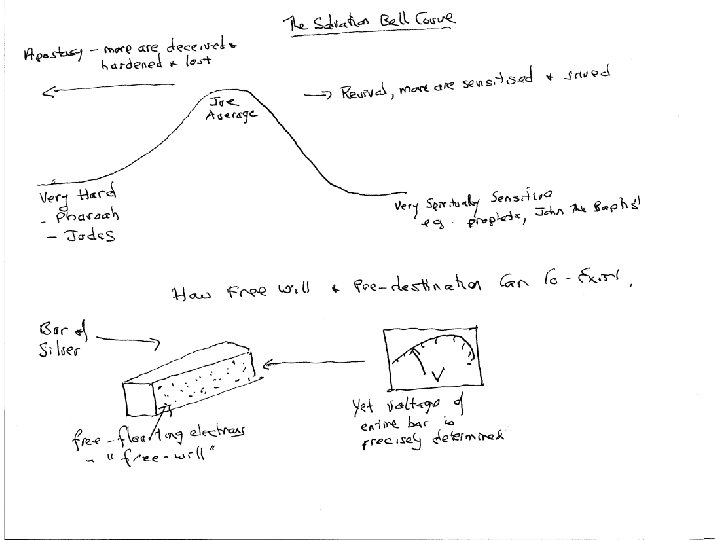 The Salvation Bell Curve
Apostasy - more are deceived &
hardened & lost
→ Revival, more are sensitised & saved
Joe
Average
Very Hard
- Pharoah
- Judas
Very Spiritually Sensitive
eg. prophets, John the Baptist
How Free Will & Pre-destination Can Co-Exist.
Bar of
Silver
V
free-floating electrons
- "free-will"
Yet voltage of
entire bar is
precisely determined